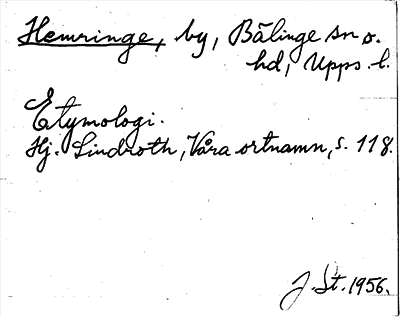 Hemringe, by, Bälinge sn o.
hd, Upps. l.
Etymologi.
Hj. Lindroth, Våra ortnamn, s. 118.
J. St. 1956.